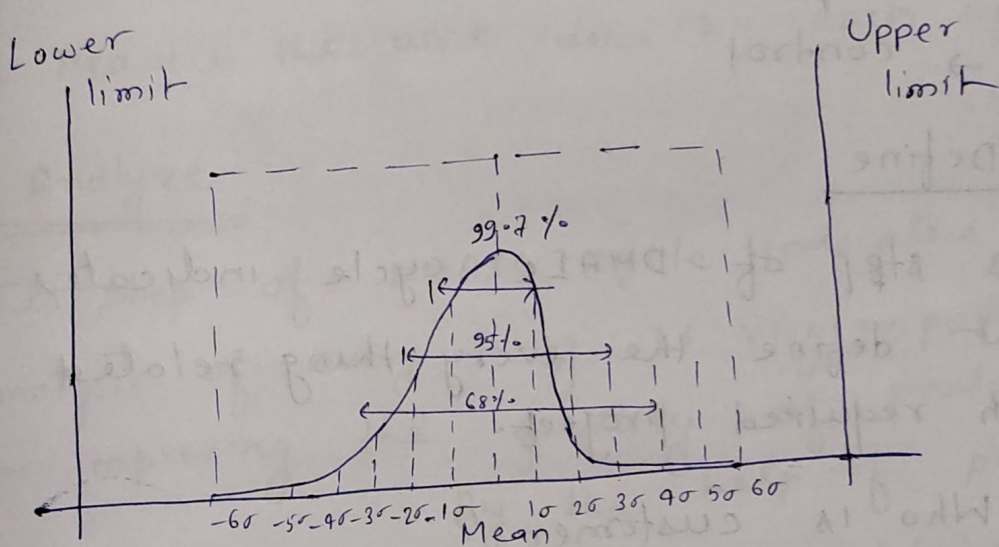 Lower
limit
Upper
limit
99.7 %
95%
68%
-6σ -5σ -4σ -3σ -2σ -1σ 1σ 2σ 3σ 4σ 5σ 6σ
Mean